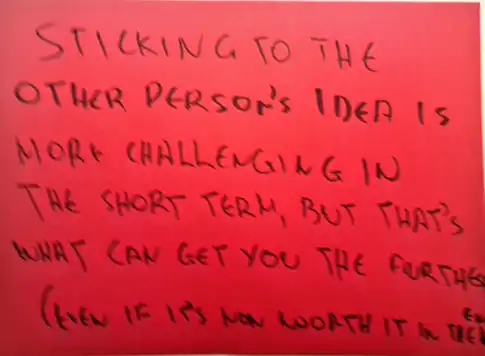 STICKING TO THE
OTHER PERSON'S IDEA IS
MORE CHALLENGING IN
THE SHORT TERM, BUT THAT'S
WHAT CAN GET YOU THE FURTHES
(EVEN IF IT'S NON WORTH IT IN THE
EN